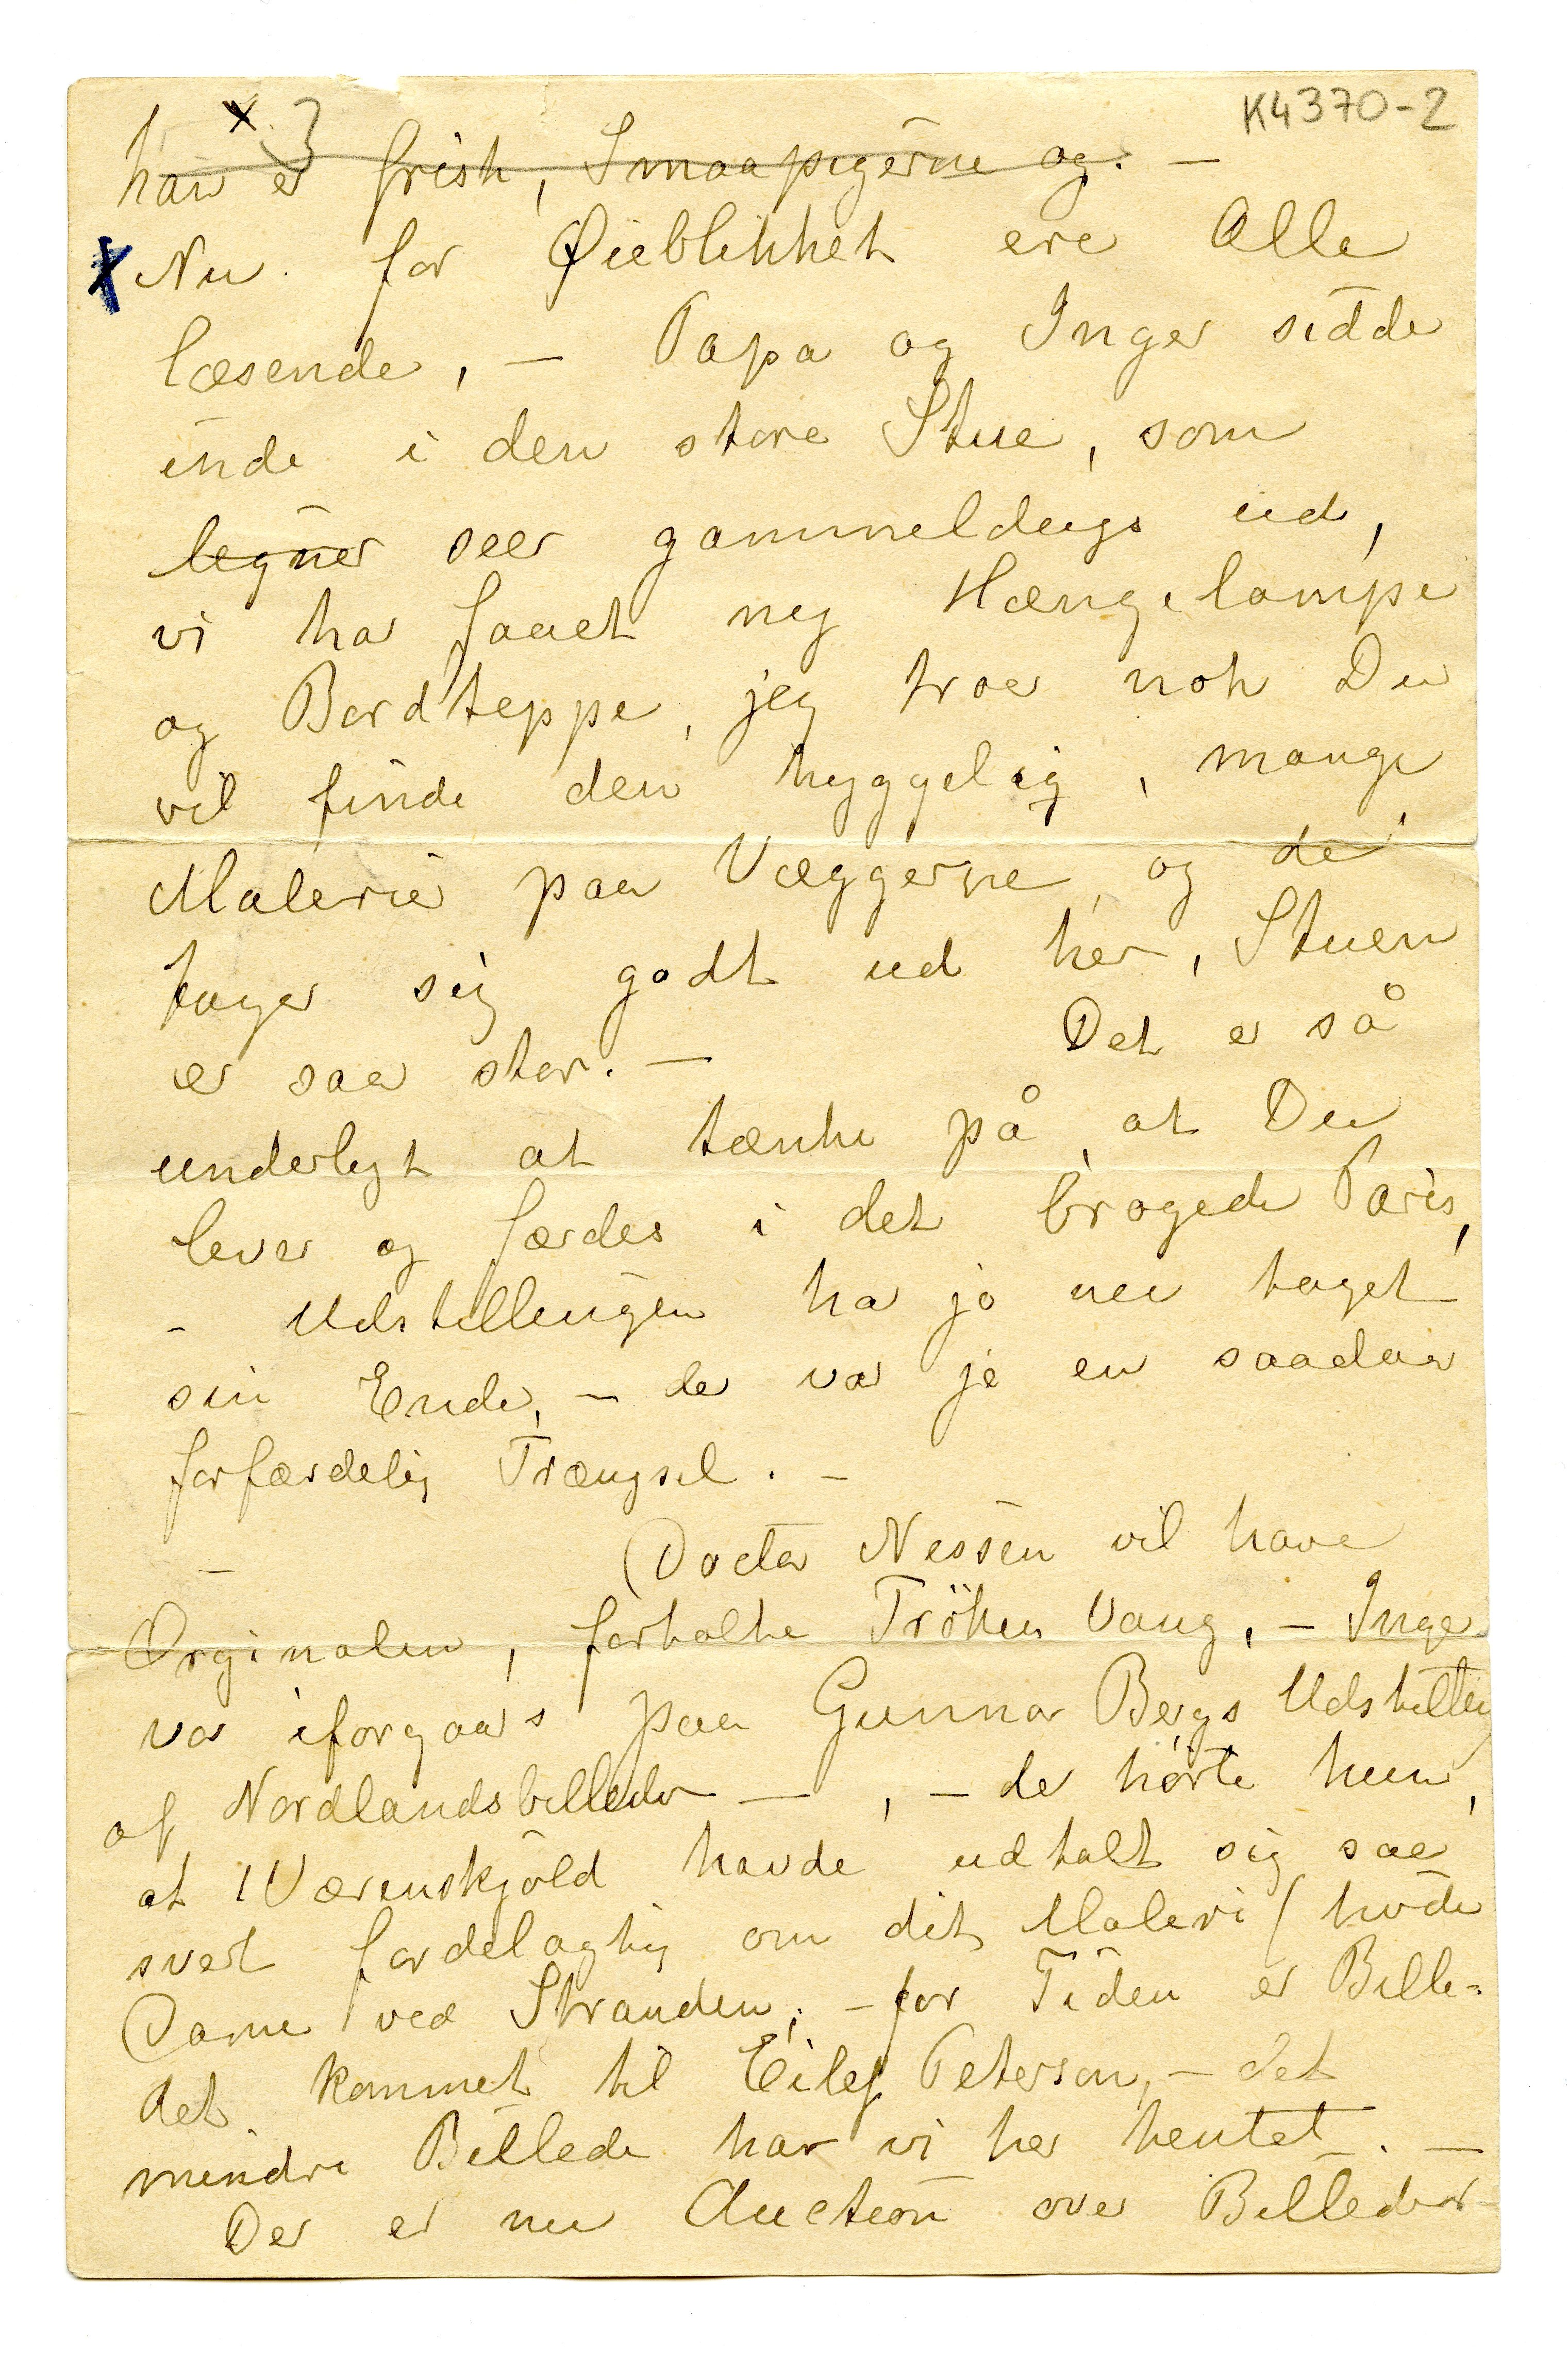 K4370-2
x 3
han er frisk, Smaapigerne og. –
x Nu for Øieblikket ere Alle
læsende, – Papa og Inger sidde
inde i den store Stue, som
legner seer gammeldags ud,
vi har faaet ny Hængelampe
og Bordteppe, jeg troer nok Du
vil finde den hyggelig, mange
Malerier paa Væggerne, og de
tager sig godt ud her, Stuen
er saa stor. – Det er så
underligt at tænke på, at Du
lever og færdes i det brogede Paris,
– Udstillingen har jo nu taget
sin Ende, – der var jo en saadan
forfærdelig Trængsel. –
– Doctor Nissen vil have
Orginalen, fortalte Frøken Vang, – Inger
var iforgaars paa Gunnar Bergs Udstilling
af Nordlandsbilleder – , – der hørte hun,
at Wærenskjold havde udtalt sig saa
svert fordelagtig om dit Maleri (hvide
Dame ved Stranden, – for Tiden er Bille-
det kommet til Eilef Peterson, – det
mindre Billede har vi her hentet. –
Der er nu Auction over Billeder